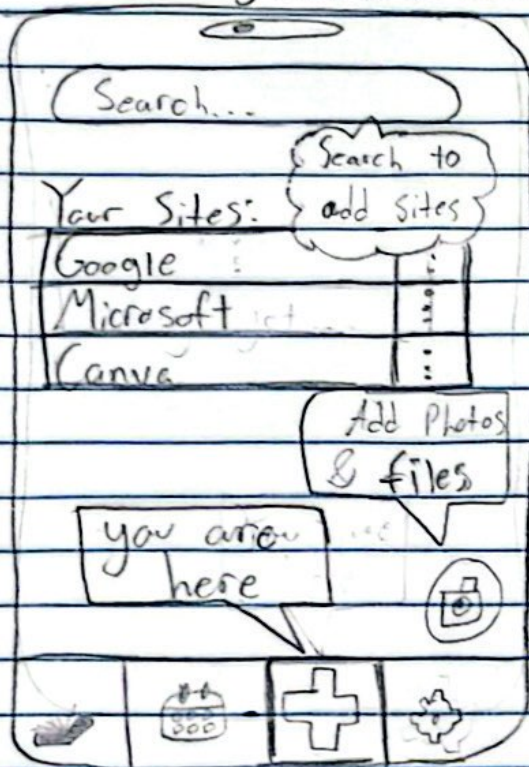 Search...
Search to
add sites
Your Sites:
Google
Microsoft
Canva
Add Photos
& files
you are
here